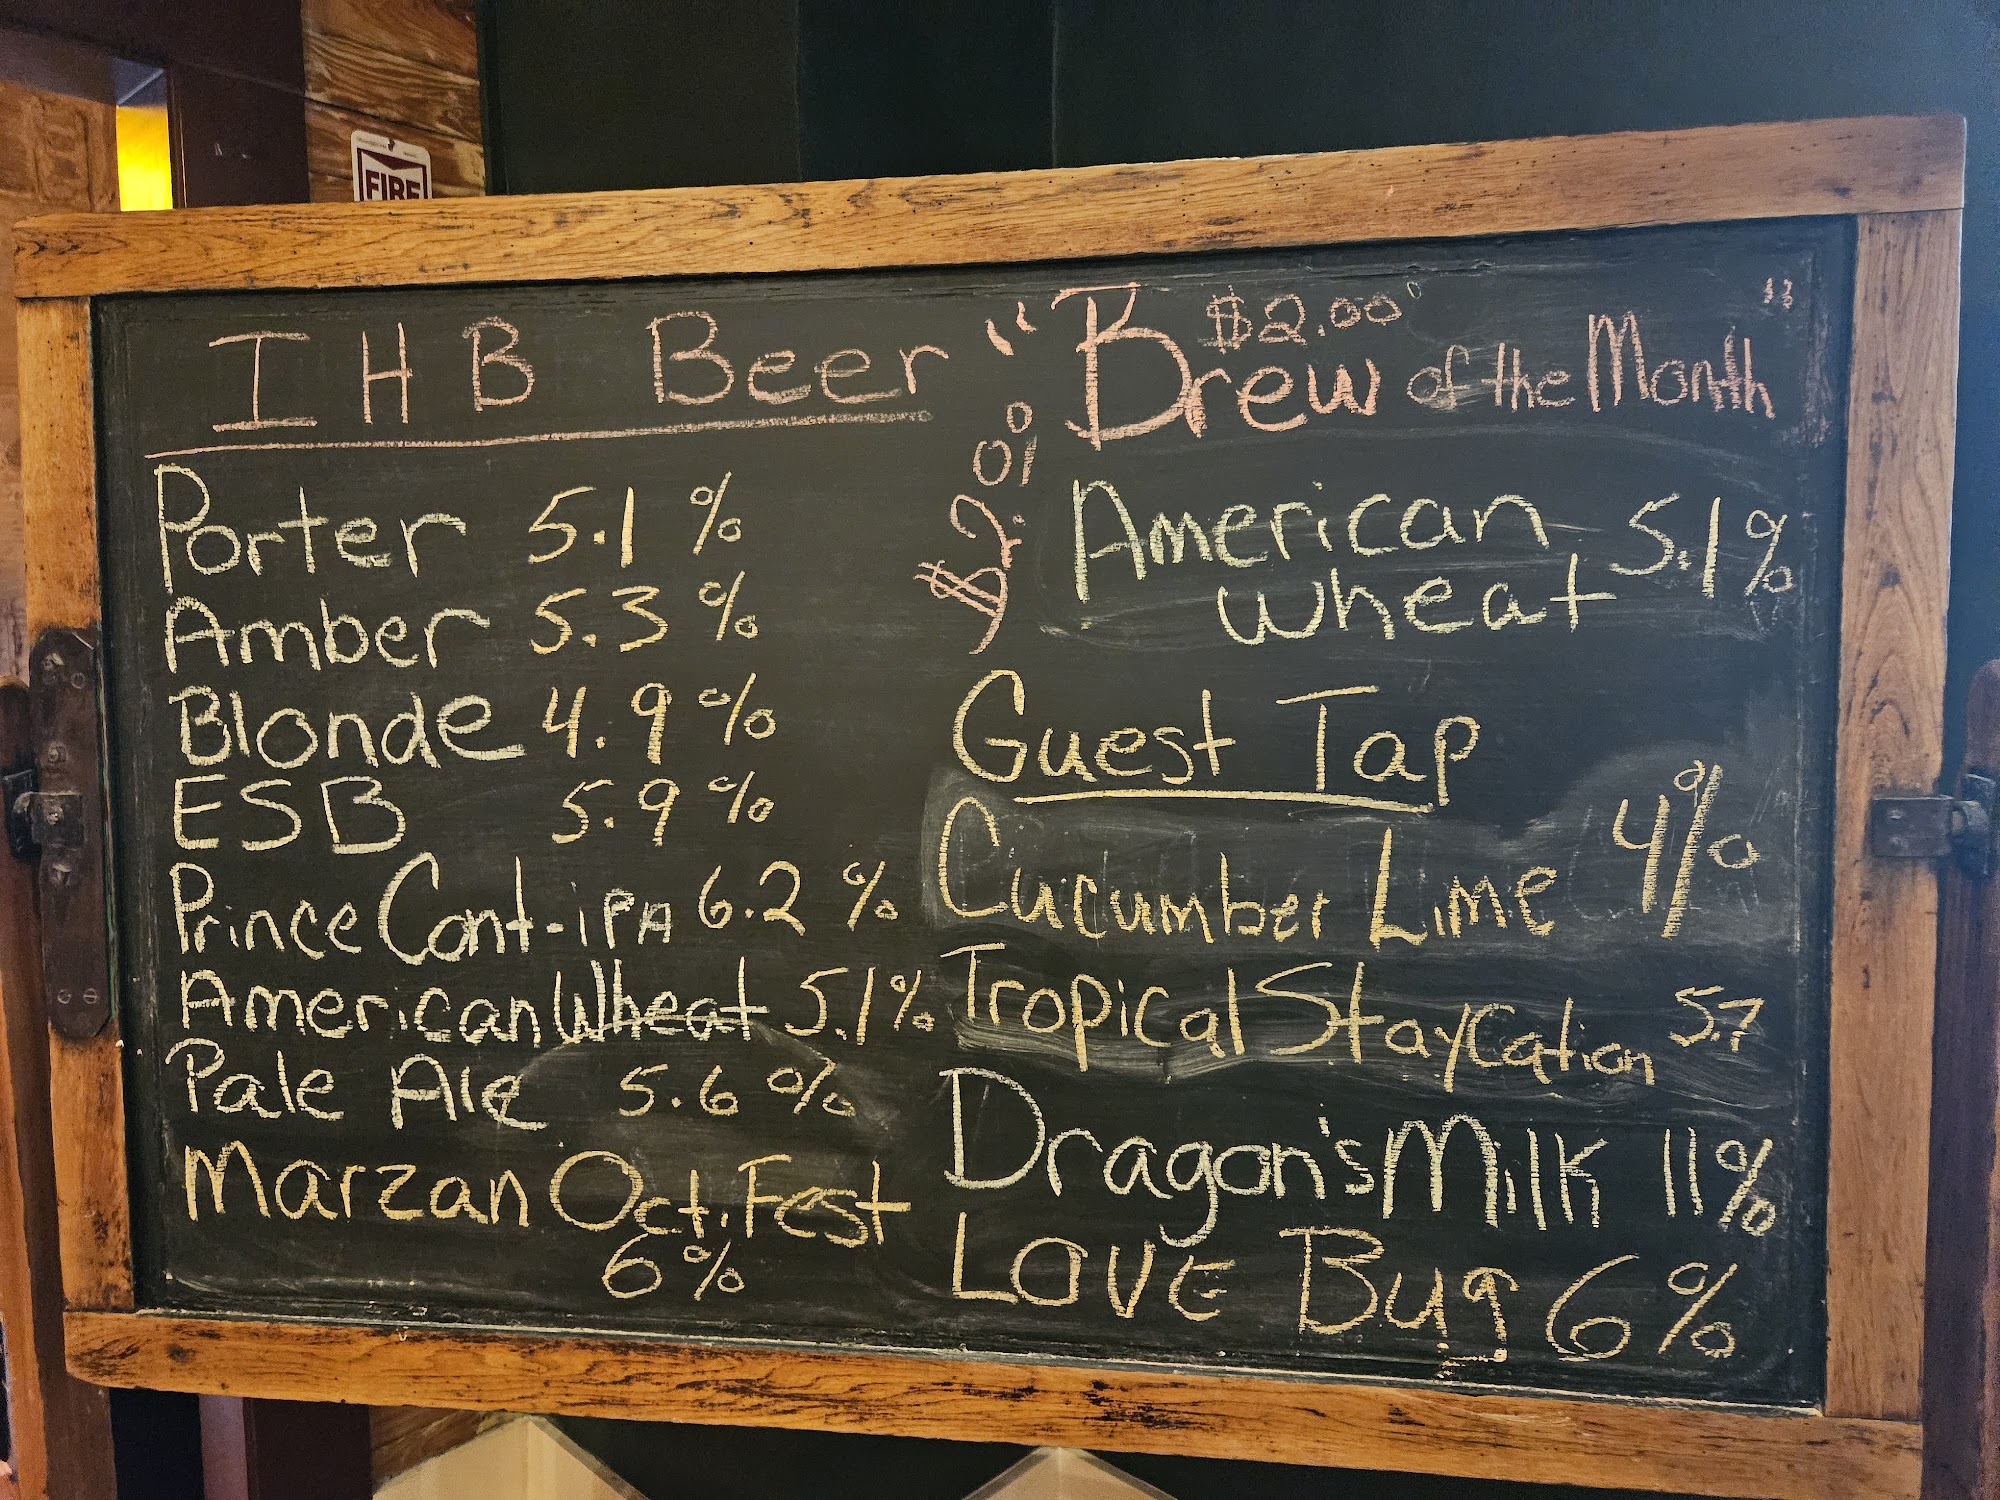 FIRE
I H B Beer
Porter 5.1 %
Amber 5.3 %
Blonde 4.9 %
ESB 5.9 %
Prince Cont-iPA 6.2 %
American Wheat 5.1%
Pale Ale 5.6 %
Marzan Oct. Fest
6%
$2.00
"Brew of the Month"
$2.00
American 5.1%
wheat
Guest Tap
Cucumber Lime 4%
Tropical Staycation 5.7
Dragon's Milk 11%
Love Bug 6%